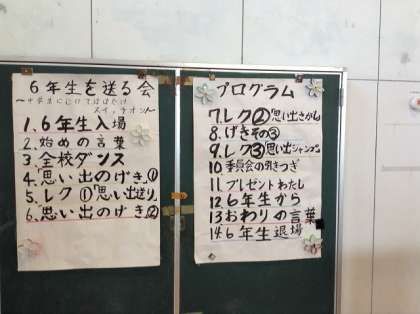 6年生を送る会
～中学生にむけてはばたけ
スイッチオン～
1.6年生入場
2.始めの言葉
3 全校ダンス
4.「思い出のげき」①
5.レク①「思い出送り」
6.思い出のげき②
プログラム
7.レク②「思い出さがし」
8.げきその③
9.レク③「思い出ジャンケン」
10 委員会の引きつぎ
11 プレゼントわたし
12 6年生から
13 おわりの言葉
14.6年生退場